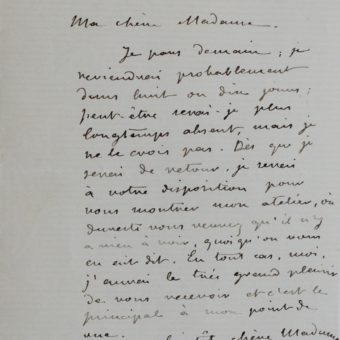 Ma chère Madame.
Je pars demain ; je
reviendrai probablement
dans huit ou dix jours ;
peut-être serai-je plus
longtemps absent, mais je
ne le crois pas. Dès que je
serai de retour, je serai
à votre disposition pour
vous montrer mon atelier, où
vous verrez qu'il n'y
a rien à voir, quoiqu'on vous
en ait dit. En tout cas, moi,
j'aurai le très grand plaisir
de vous recevoir et c'est le
principal à mon point de
vue.
chère Madame